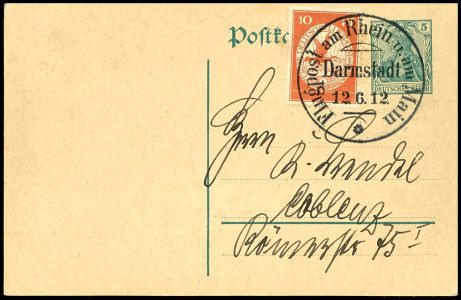 Postk
10
5
DEUTSCHES REICH
Flugpost am Rhein u. am Main
Darmstadt
12.6.12
Herrn
R. Wendel
Coblenz
Römerstr 75 I